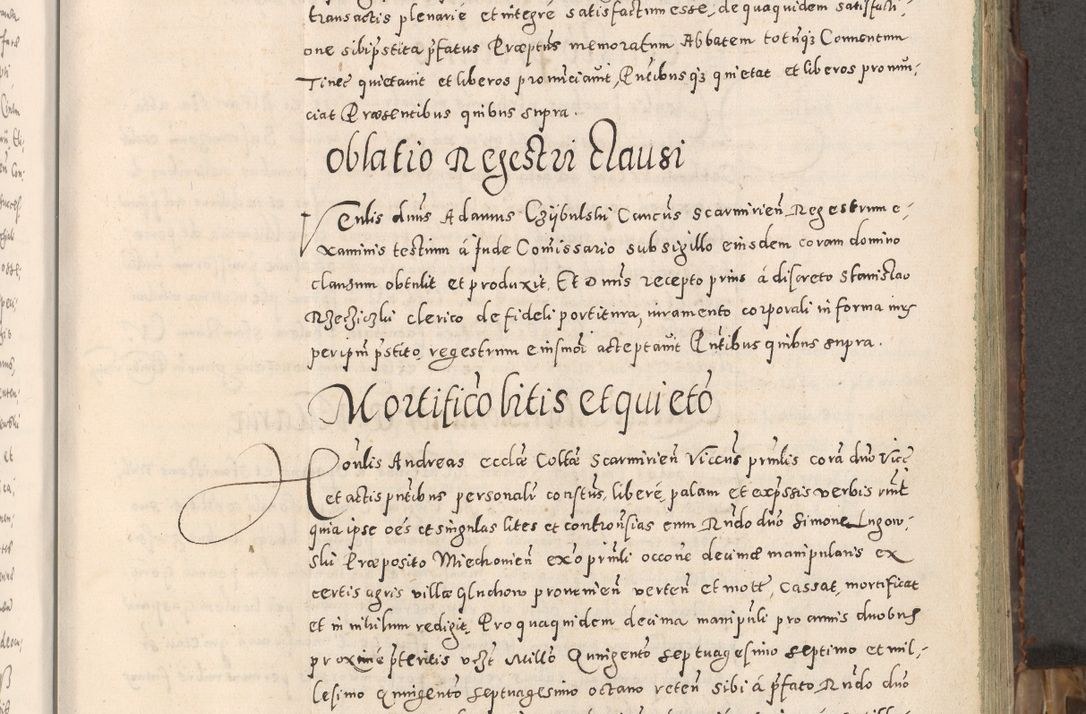 transactis plenarie et integre satisfactum esse, de qua quidem satisfacti-
one sibi pstita pfatus Præptus memoratum Abbatem totumq3 Conuentum
Tinec quietauit et liberos pronunciauit, Pntibusq3 quietat et liberos pronun-
ciat Præsentibus quibus supra.
Oblatio Regestri clausi
Venlis duns Adamus Czijbulski Cancus Scarmirien Regestrum e-
xaminis testium á Jnde Comissario sub sigillo eiusdem coram domino
clausum obtulit et produxit, Et D uns recepto prius á discreto Stanislao
Rzeziczki clerico de fideli portitura, iuramento corporali in forma iurs
per ipm pstito, regestrum eiusmoi acceptauit Pntibus quibus supra.
Mortifico litis et quieto
Honlis Andreas ecclæ Collæ Scarmirien Viccus prnlis corā dno Vice
et actis pntibus personalr constus, libere, palam et expssis verbis rnit
quia ipse oes et singulas lites et controusias cum Rndo dno Simone Lugow-
ski Præposito Miechouien exo prnli occone decimæ manipularis ex
certis agris villæ Gluchow prouenien verten et mott, Cassat, mortificat
et in nihilum redigit, Pro qua quidem decima manipuli pro annis duobus
proxime pteritis vczt Millo Quingento septuagesimo septimo et mil-
lesimo quingento septuagesimo octauo reten sibi á pfato Rndo dno